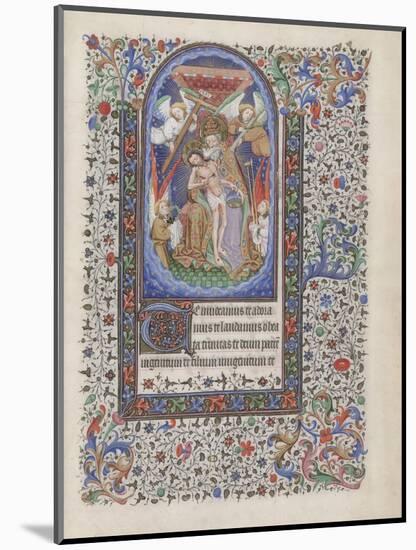 Te inuocamus te adora
mus te laudamus o bea
ta trinitas te deum patrē
ingenitum te filium unigenitum te